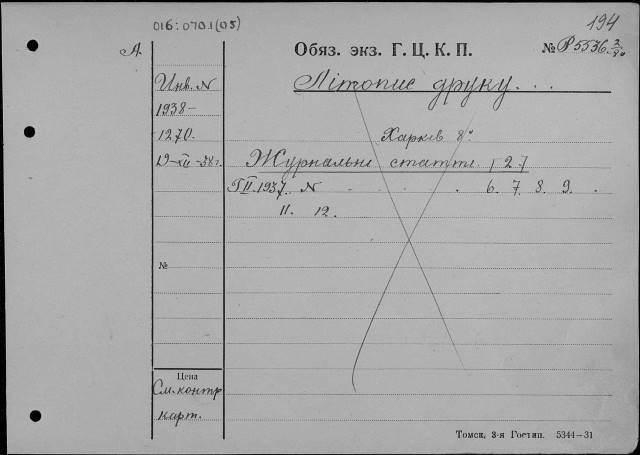 016:070.1(05)
194
А.
Обяз. экз. Г. Ц. К. П.
№ Р5536 2/80
Инв. N
1938-
1270.
19-XII-38 г.
Літопис друку...
Харків 8°
Журнальні статті. [2]
1937. N . . . . 6. 7. 8. 9.
11. 12.
№
Цена
См. контр
карт.
Томск, 3-я Гостип. 5344-31